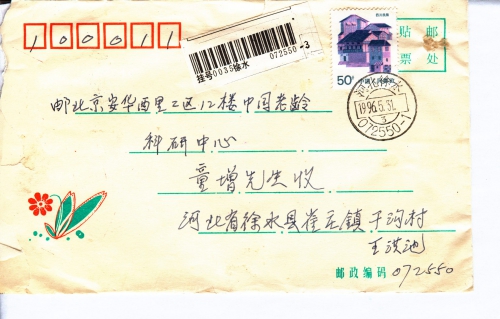 100011
挂号0035徐水 072550-3
四川民居
50分 中国人民邮政
贴邮
票处
河北徐水
1996.5.31
072550-1
邮北京安华西里2区12楼中国老龄
科研中心
童增先生收
河北省徐水县崔庄鎮于沟村
王洪池
邮政编码 072550